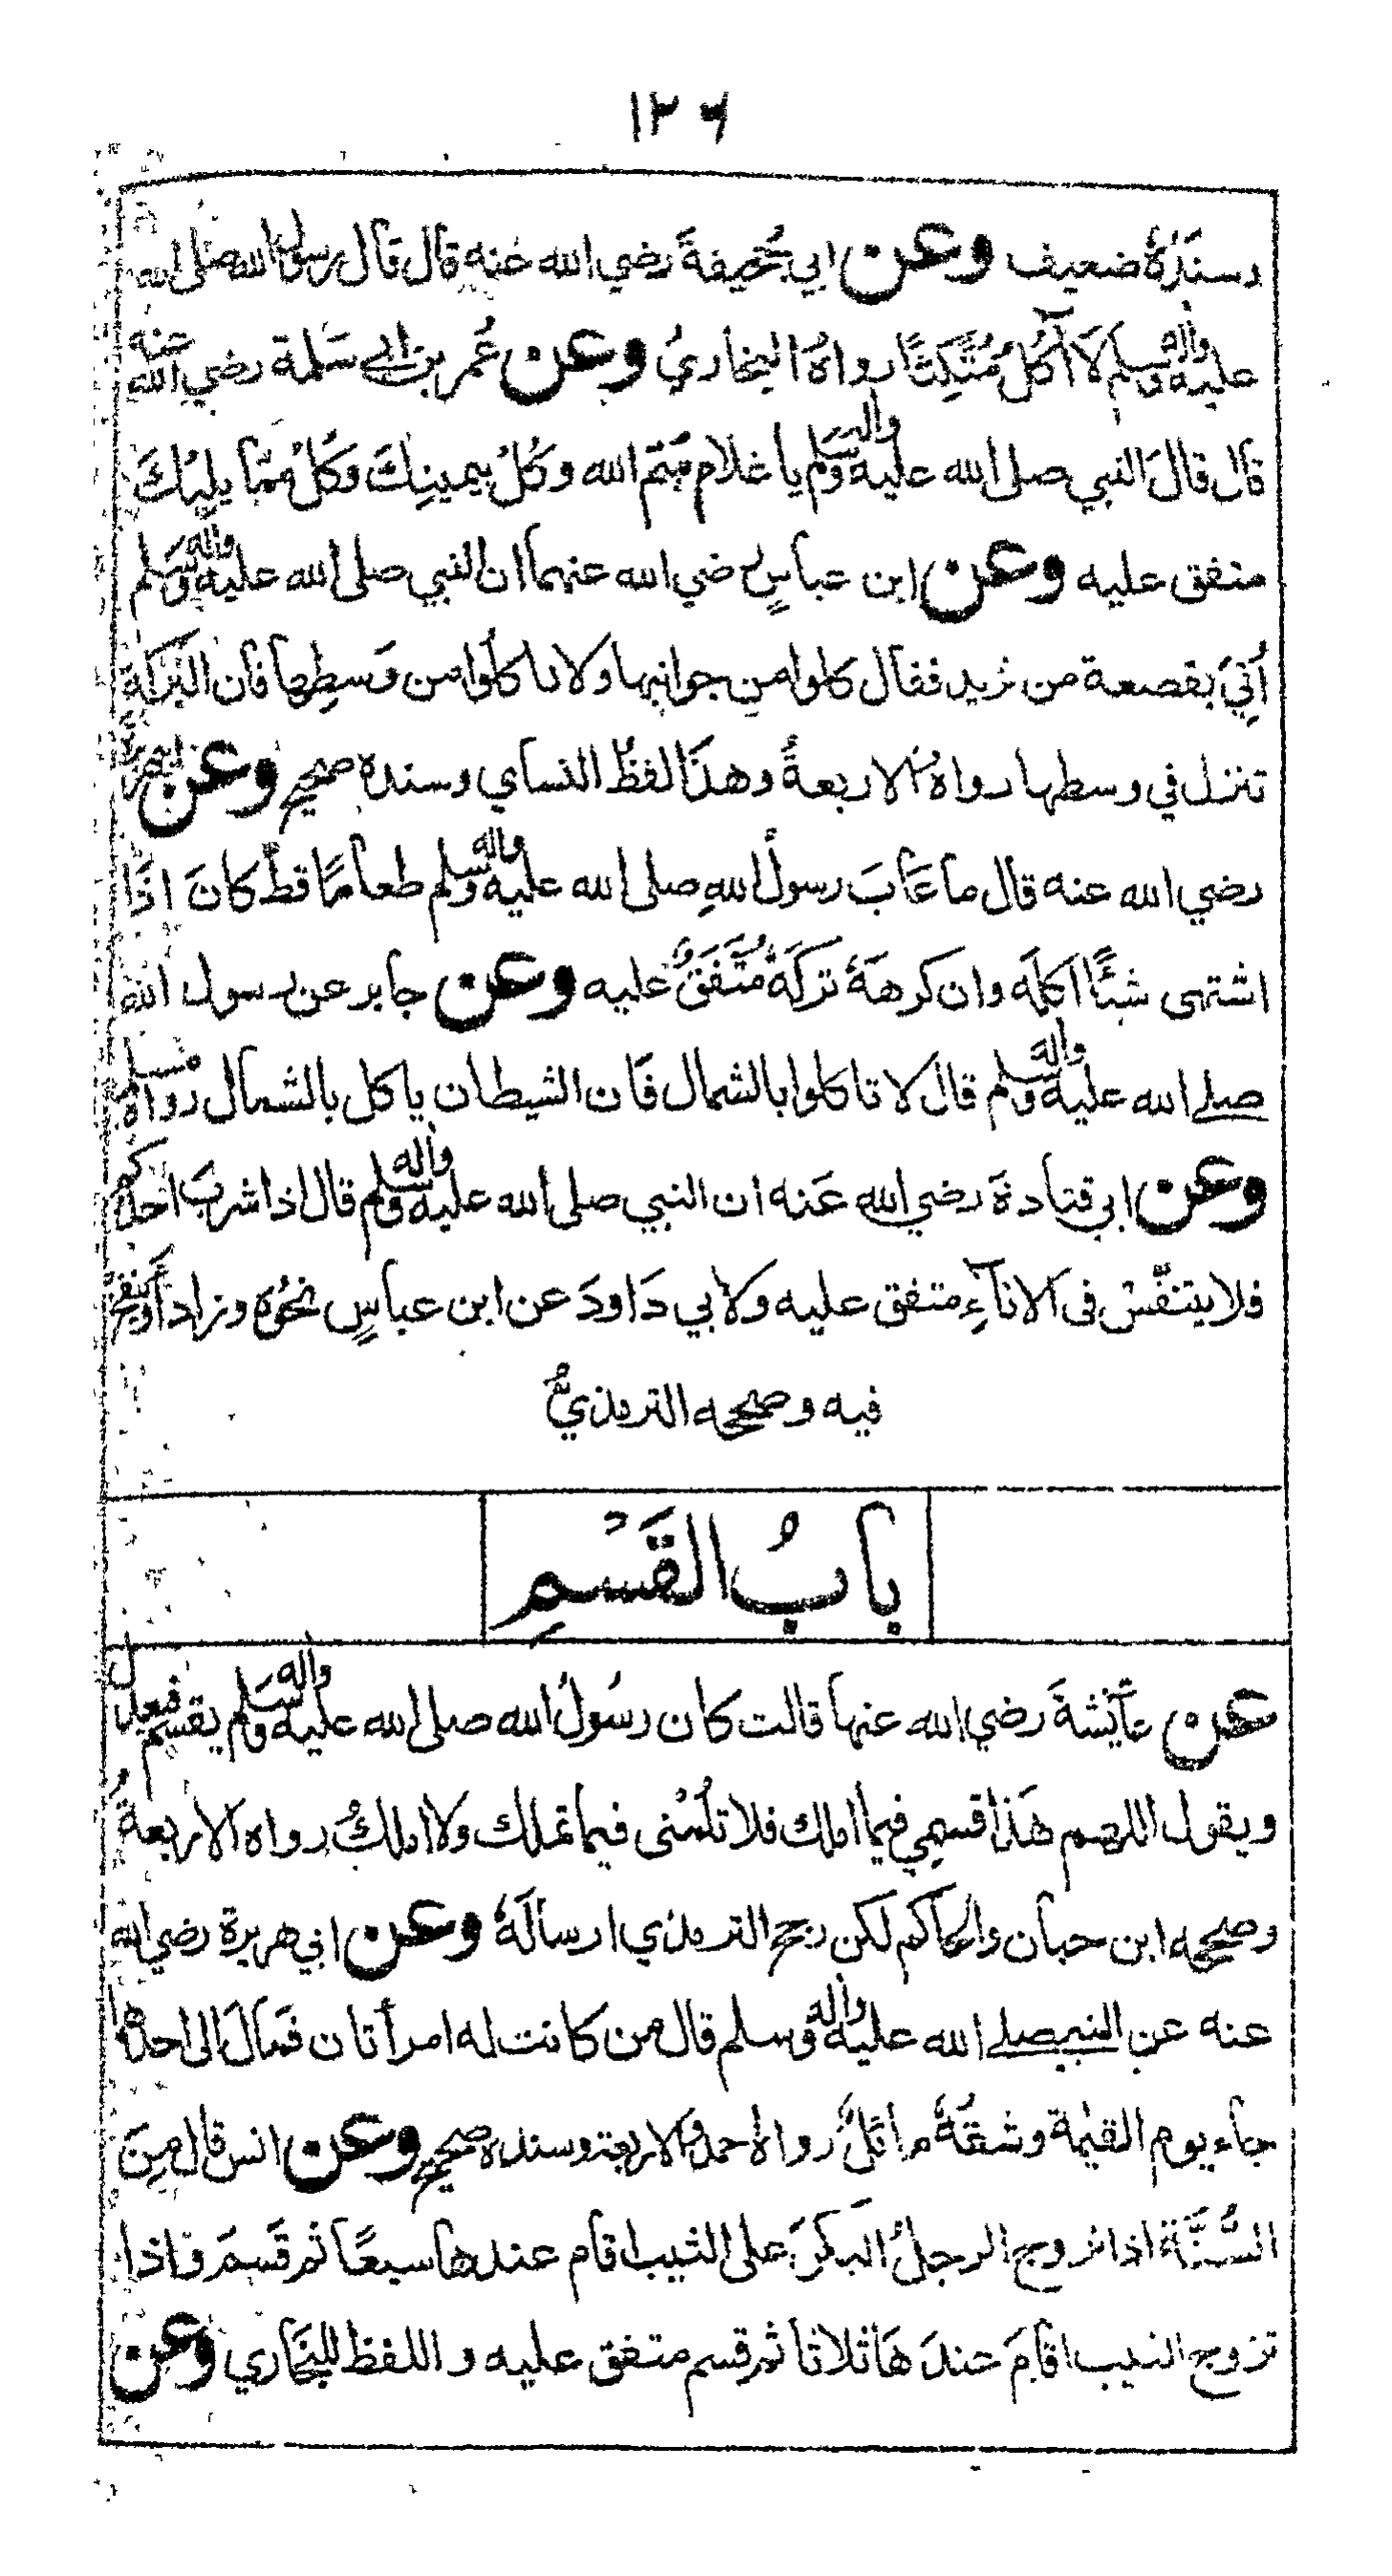 ١٢٦
وسنَدُهُ ضعيف وعن ابي جُحيفةَ رضي الله عنه قال قال رسول الله صلى الله
عليه واله وسلم لَا آكُلُ مُتَّكِئًا رواهُ البخاريُ وعن عُمر بن ابي سَلمة رضي الله عنه
قال قالَ النبي صلى الله عليه واله وسلم يا غلام سَمِّ الله وكُلْ بيمينِكَ وكُلْ ممّا يليْكَ
متفق عليه وعن ابن عباسٍ رضي الله عنهما ان النبي صلى الله عليه واله وسلم
اُتِيَ بقصعة من ثريد فقال كلوا من جوانبها ولا تاكلُوا من وَسطِها فان البَرَكة
تنزل في وسطها رواهُ الاربعةُ وهذَا لفظُ النساي وسنده صحيح وعن ابي هريرةَ
رضي الله عنه قال ما عَابَ رسولُ اللهِ صلى الله عليه واله وسلم طعامًا قطُ كانَ اذَا
اشتهى شيئًا اكلَه وان كرهَهُ تركَهُ مُتَّفَقٌ عليه وعن جابر عن رسول الله
صلى الله عليه واله وسلم قال لا تاكلوا بالشمال فَان الشيطان ياكل بالشمال رواهُ مسلم
وعن ابي قتادةَ رضي الله عَنه ان النبي صلى الله عليه واله وسلم قال اذا شربَ احدكم
فلا يتنفّسْ فى الانآءِ متفق عليه ولابي دَاودَ عن ابن عباسٍ نحوُه وزاد اَو ينفخْ
فيه وصححه الترمذيُّ
بابُ القَسْمِ
عن عآئشةَ رضي الله عنها قالت كان رسُولُ الله صلى الله عليه واله وسلم يقسم فيعدل
ويقول اللهم هَذا قسمِي فيما املك فلا تلُمْنى فيما تملك ولا املكُ رواه الاربعةُ
وصححه ابن حبان والحاكم لكن رجح الترمذي ارسالَهُ وعن ابي هريرة رضي الله
عنه عن النبي صلى الله عليه واله وسلم قال من كانت له امرأتان فمالَ الى احدٰهما
جاء يوم القيٰمة وشقُهُ مائلٌ رواهُ احمد والاربعة وسنده صحيح وعن انس قال مِنَ
السُّنَّة اذا تزوج الرجلُ البكرَ على الثيب اقام عندها سبعًا ثم قَسمَ واذا
تزوج الثيب اقامَ عندَهَا ثلاثا ثم قسم متفق عليه واللفظ للبخاري وعن